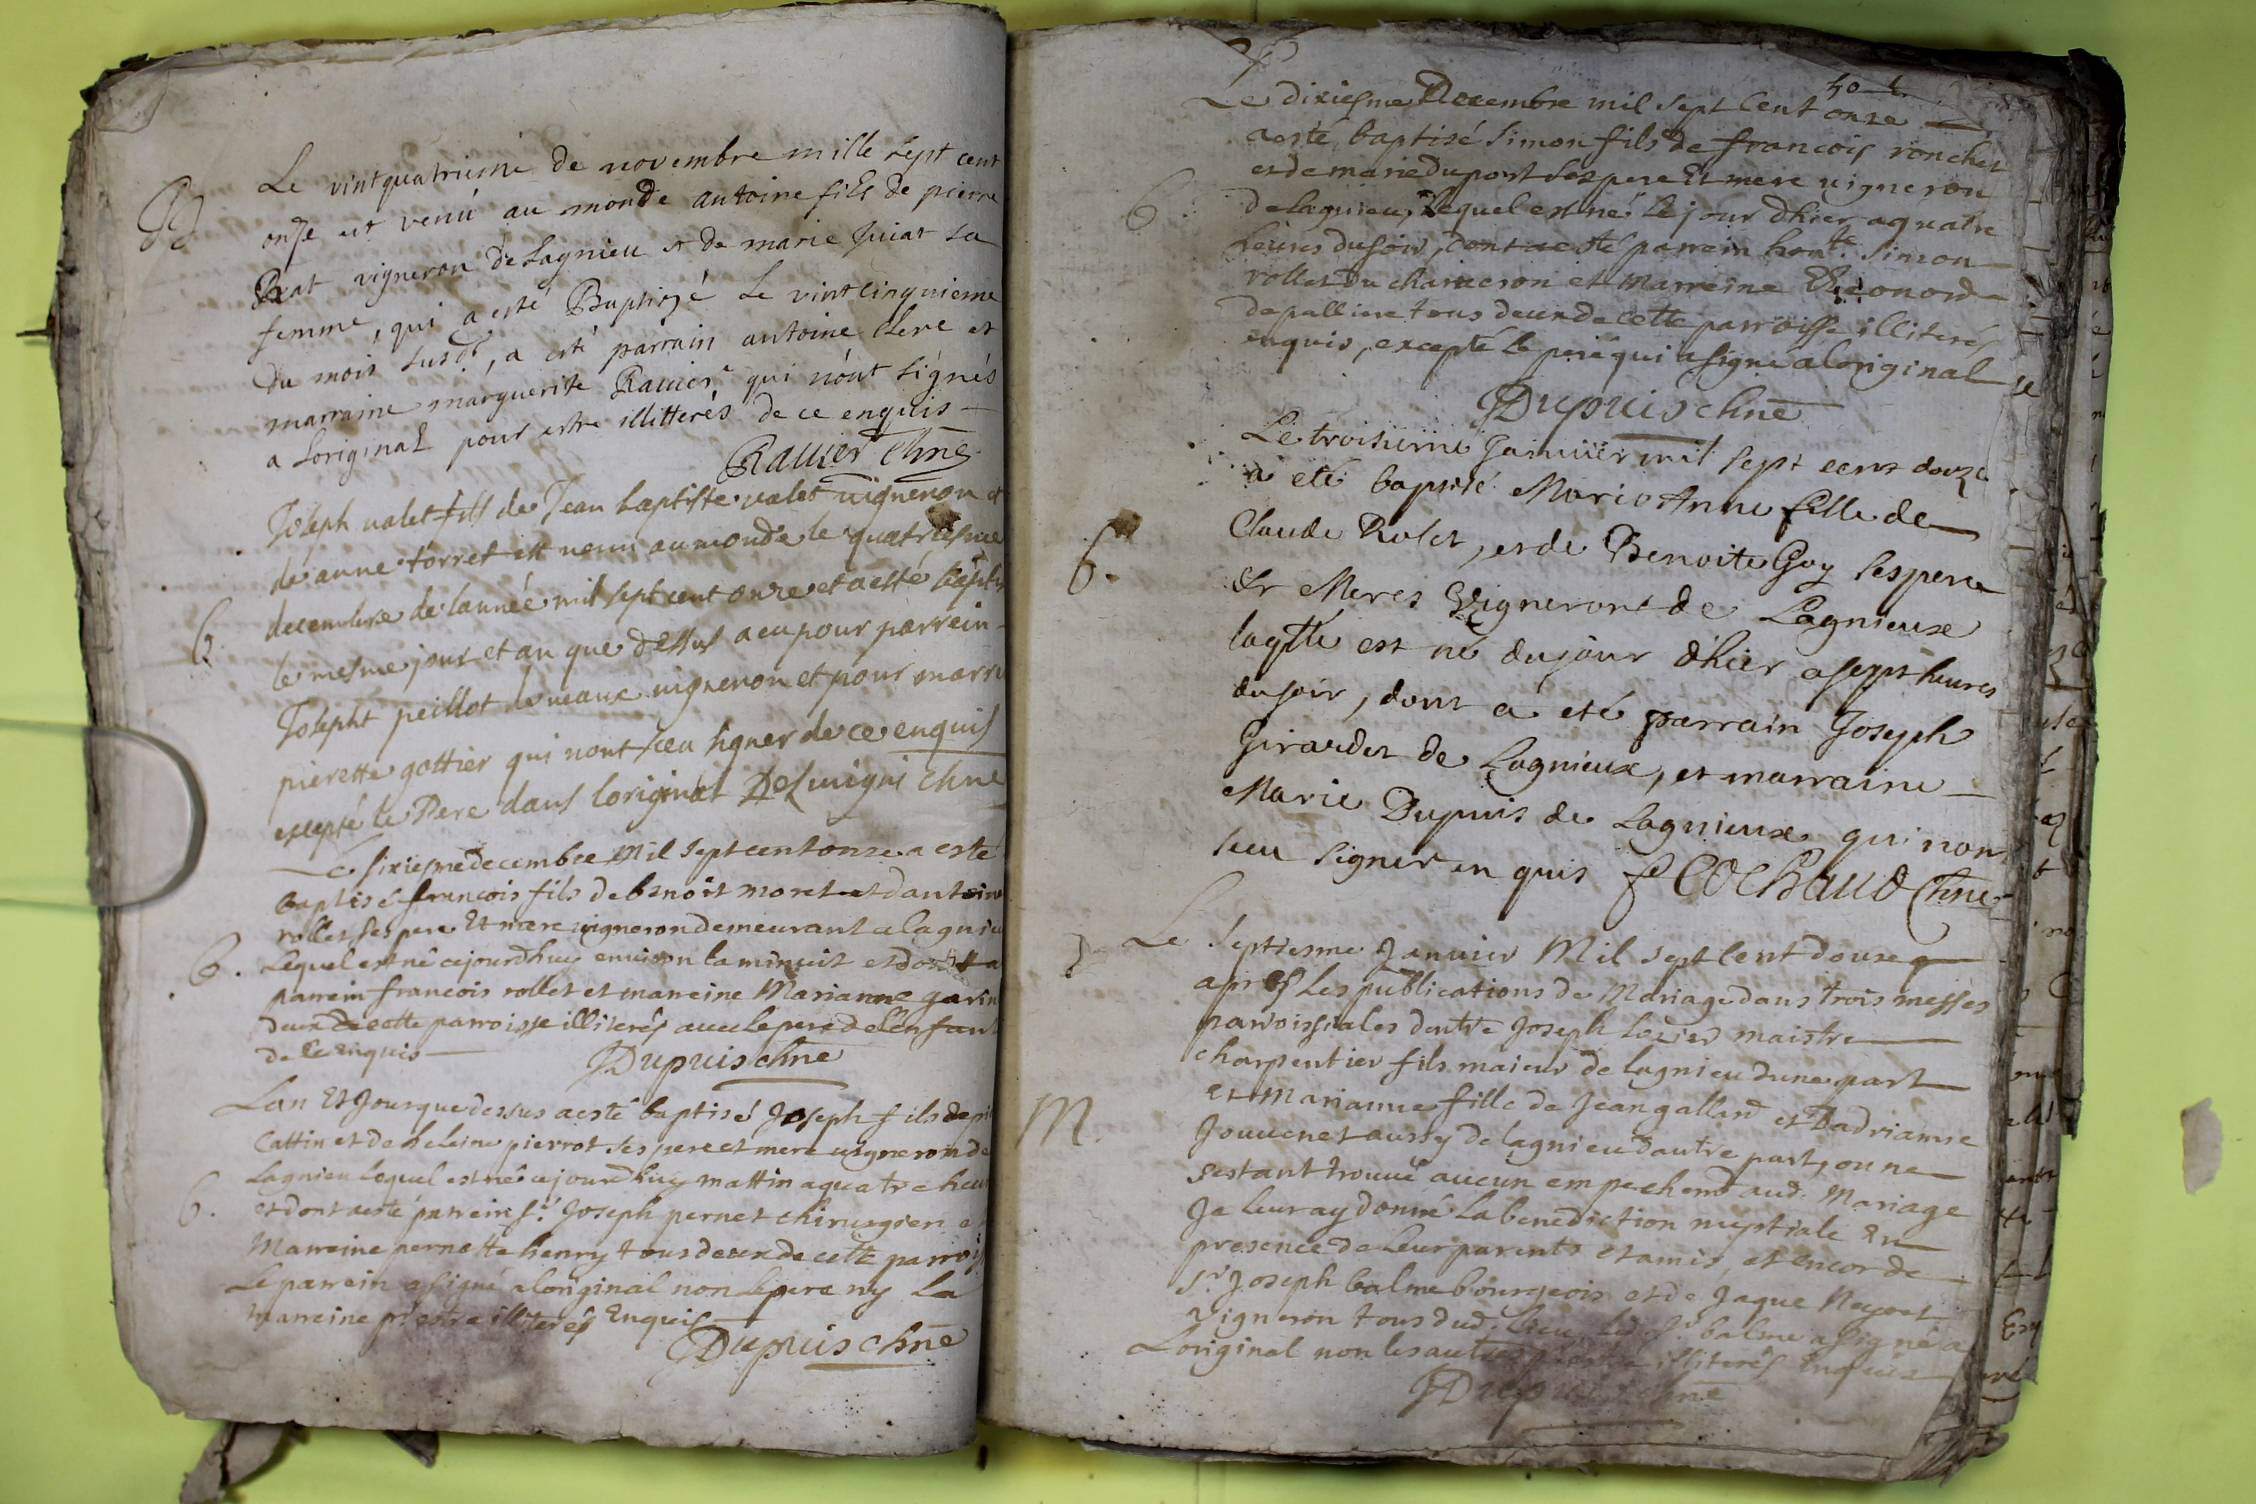 Le vintquatrieme de novembre mille sept cent
onze est venu au monde antoine fils de pierre
vigneron de Lagnieu et de marie Juiat sa
femme, qui a esté Baptizé Le vintcinquieme
Du mois susd.t, a esté parrain antoine Clere et
marraine marguerite Ravier qui n'ont signés
a Loriginal pour estre illitterés de ce enquis
Ravier Chne
B
Joseph valet fils de Jean baptiste valet vigneron et
de anne torret est venu au monde le quatriesme
decembre de lannée mil sept cent onze et a esté baptis
le mesme jour et an que dessus a eu pour parrein
Josepht peillot de veaux vigneron et pour marr
pierette gottier qui nont sceu signer de ce enquis
excepté le Pere dans loriginal Deluvigni Chne
6
Le sixiesme decembre Mil sept cent onze a este
baptisé francois fils de benoit moret et dantoine
rollet ses pere Et mere vigneron demeurant a lagnieu
Lequel est né cejourdhuy environ la minuit et dont a
parrein francois rollet et mareine Marianne garin
deux de cette parroisse illiterés avec le pere de lenfant
de ce enquis
Dupuis chne
6.
Lan Et Jour que dessus a esté baptisé Joseph fils de pi
Cattin et de heleine pierrot ses pere et mere vigneron de
Lagnieu lequel est né cejourdhuy mattin a quatre heur
et dont a esté parrein Sr. Joseph pernet chirurgien e
Marreine pernette henry tous deux de cette parrois
Le parrein a signé a loriginal non le pere ny La
marreine pr estre illiterés Enquis
Dupuis chne
6.
50
Le dixiesme Decembre mil sept Cent onze
a esté baptisé Simon fils de francois ronchet
et de marie dupont ses pere Et mere vigneron
de lagnieu, Lequel est né Le jour dhier a quatre
heures du soir, dont a esté parrein hon.te Simon
rollet du charneron et Marreine Eleonord
depalliere tous deux de cette parroisse illiterés
enquis, excepté le pere qui a signé a loriginal
Dupuis chne
6
Le troisieme Janvier mil sept cent douze
a eté baptisé Marie Anne fille de
Claude Rolet, et de Benoite Goy ses pere
et Meres Vignerons de Lagnieux
laqlle est né du jour d'hier a sept heures
du soir, dont a eté parrain Joseph
Girardet de Lagnieux, et marraine
Marie Dupuis de Lagnieux qui n'ont
sceu signer en quis f Cochaud Chne
6.
Le Septiesme Janvier Mil sept Cent douze
apres Les publications de Mariage dans trois messes
parroissiales dentre Joseph lozier maistre
charpentier fils maieur de lagnieu dune part
et Marianne fille de Jean galland et Dadrianne
Jouvenet aussy de lagnieu dautre part, on ne
sestant trouvé aucun empechemt aud. Mariage
Je leur ay donné La benediction nuptiale En
presence de Leur parents et amis, et encor de
Sr. Joseph balme bourgeois et de Jaque Neyret
vigneron tous dud. lieu, led. Sr balme a signé a
Loriginal non les autres illiterés Enquis
Dupuis chne
M.